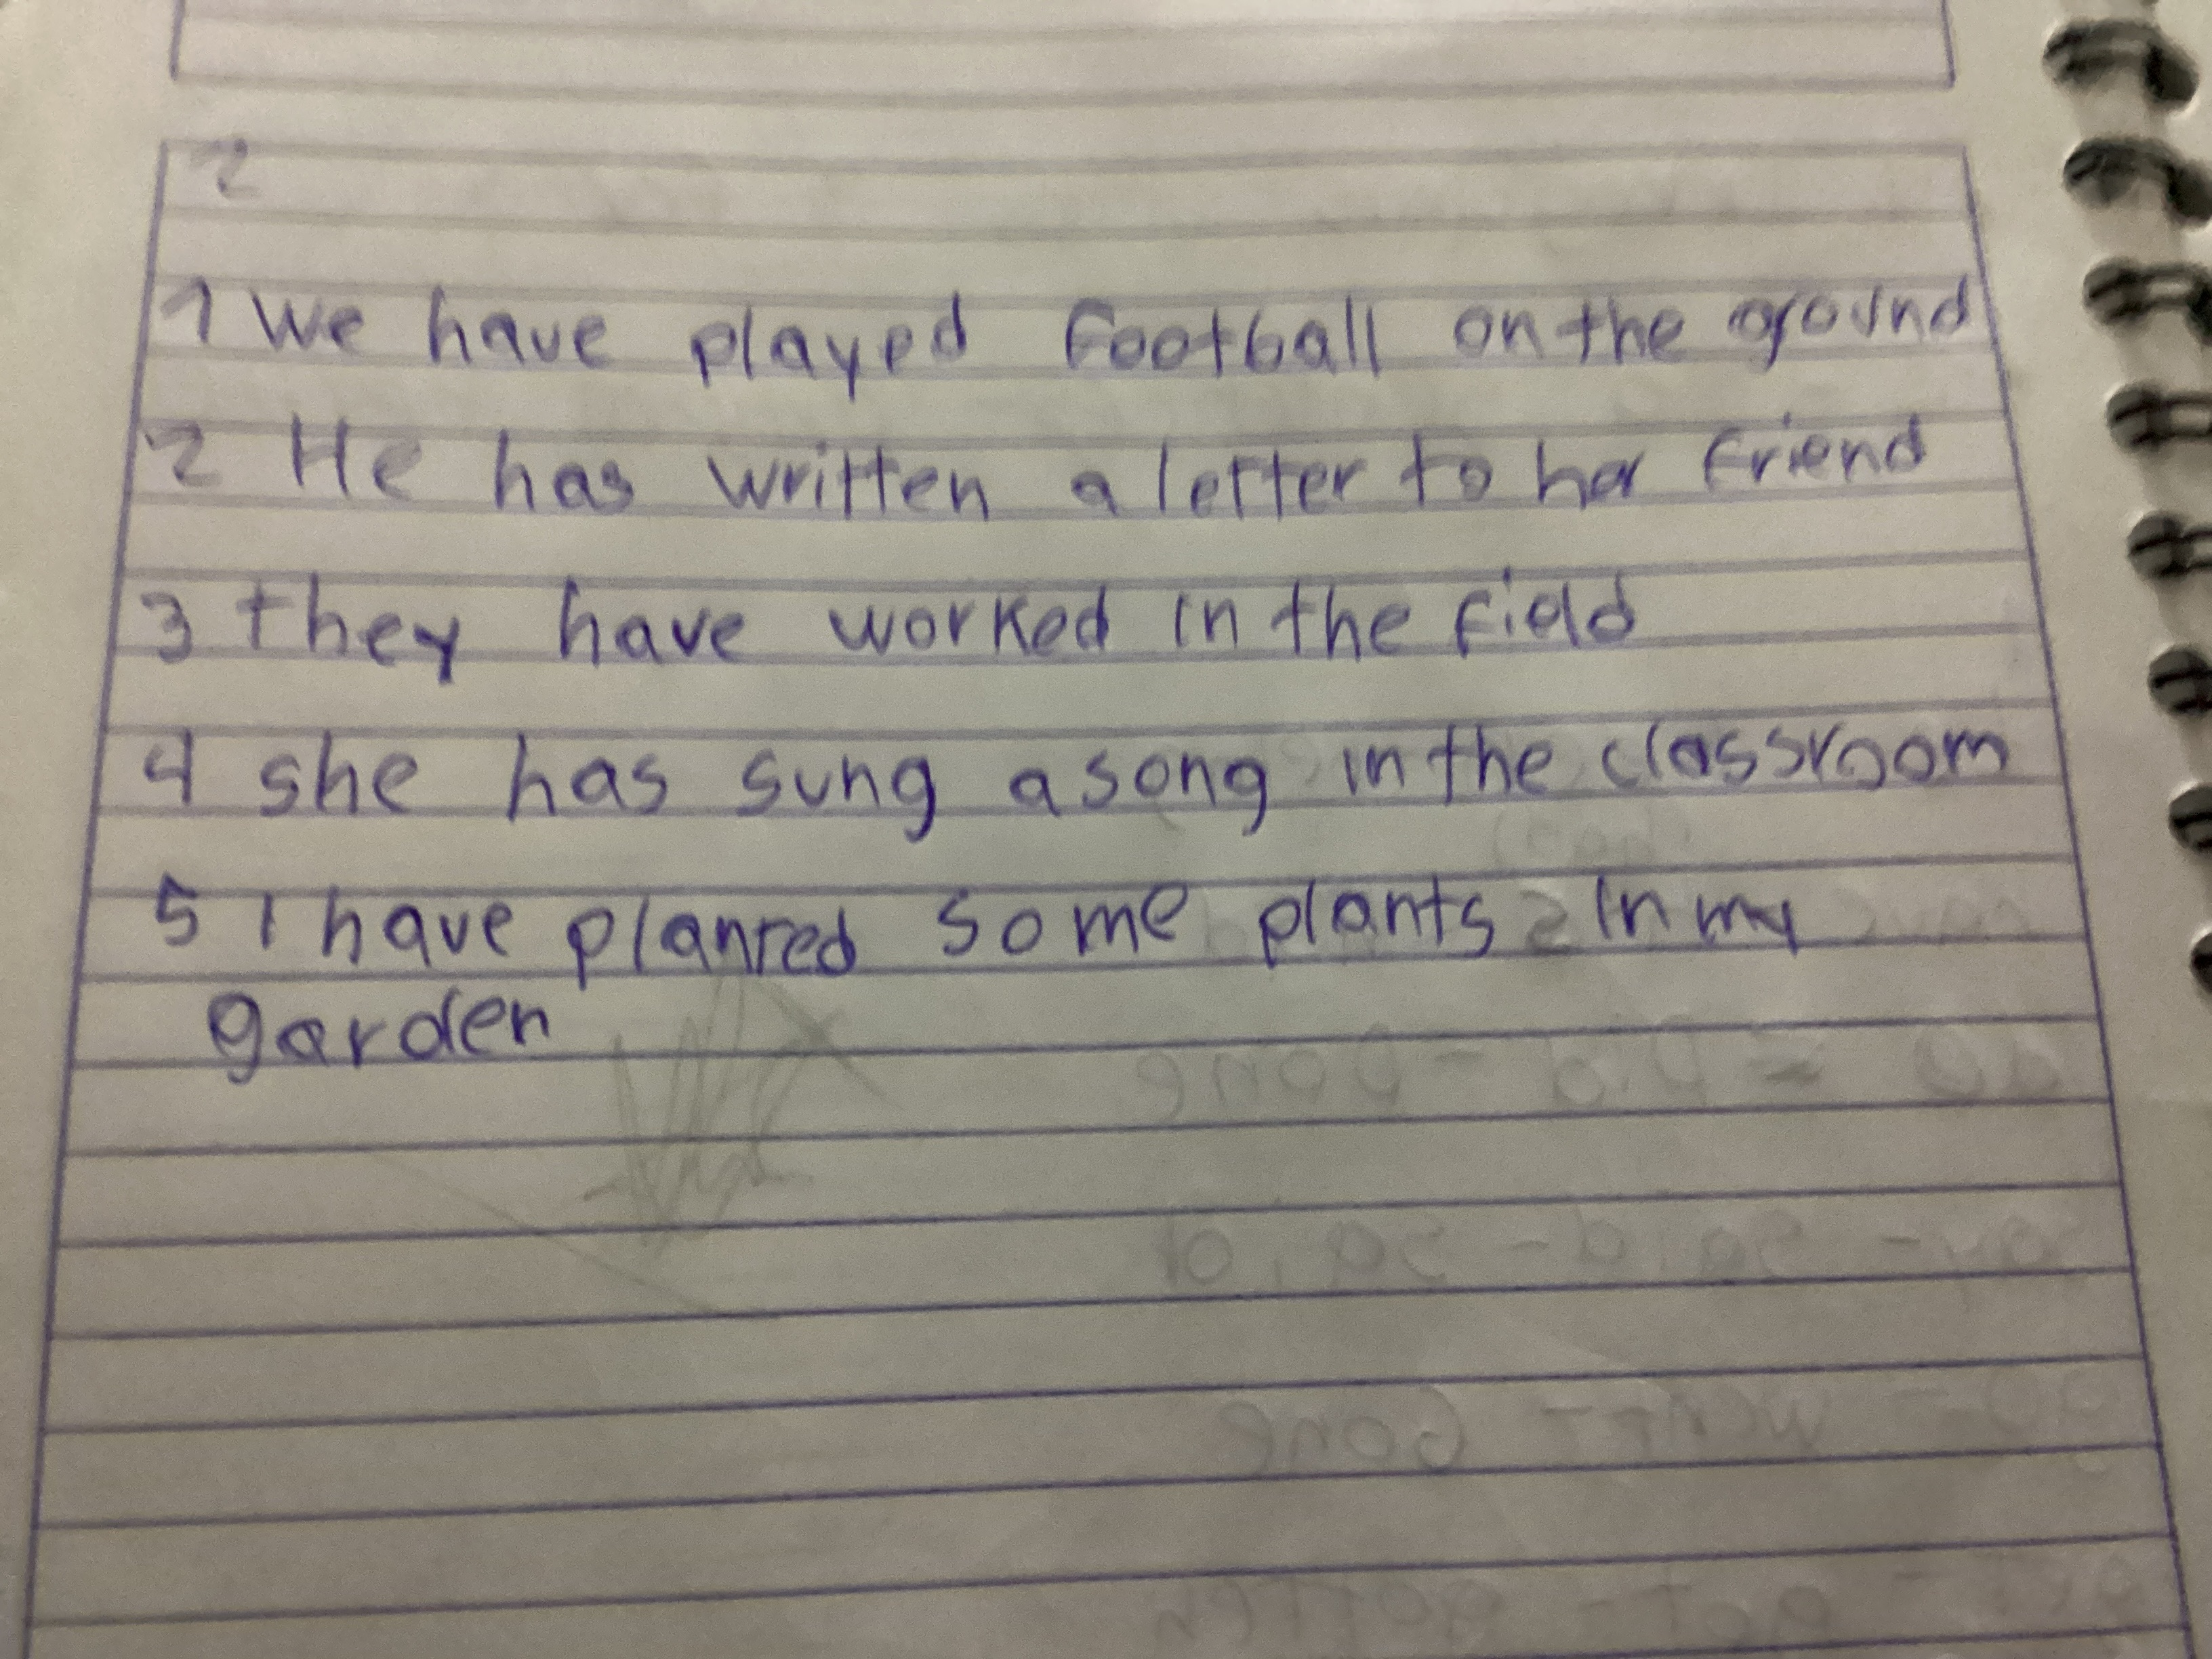 2
1 We have played football on the ground
2 He has written a letter to her friend
3 they have worked in the field
4 she has sung a song in the classroom
5 I have planted some plants in my
garden